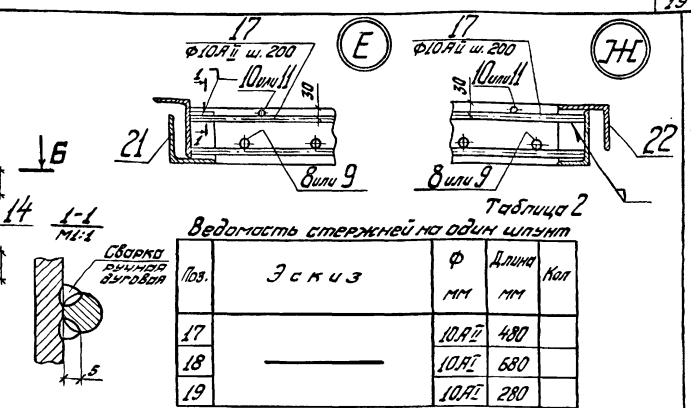 19
17
Ф10АII ш. 200
Е
1
10 или 11
30
1
21
8 или 9
17
Ф10АII ш. 200
Ж
10 или 11
22
8 или 9
Б
14
1-1
М1:1
Сварка
ручная
дуговая
5
Таблица 2
Ведомость стержней на один шпунт
Поз. Эскиз Ф мм Длина мм Кол
17 10АII 480
18 10АI 680
19 10АI 280